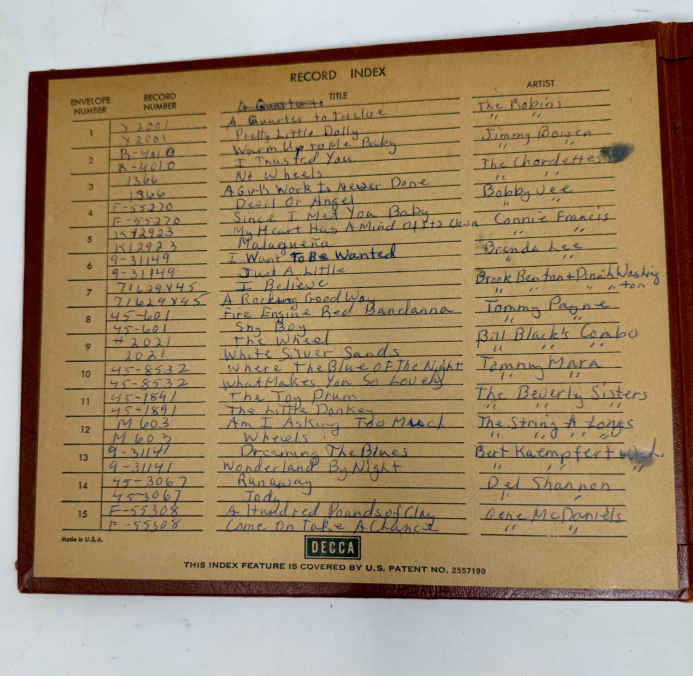 RECORD INDEX
ENVELOPE NUMBER RECORD NUMBER TITLE ARTIST
A Quarter to
1 X2001 A Quarter to Twelve The Robins
X2001 Pretty Little Dolly " "
2 R-4010 Warm Up to Me Baby Jimmy Bowen
R-4010 I Trusted You " "
3 1366 No Wheels The Chordettes
1366 A Girls Work Is Never Done " "
4 F-55270 Devil Or Angel Bobby Vee
F-55270 Since I Met You Baby " "
5 K12923 My Heart Has A Mind Of Its Own Connie Francis
K12923 Malagueña " "
6 9-31149 I Want To Be Wanted Brenda Lee
9-31149 Just A Little " "
7 71629X45 I Believe Brook Benton + Dinah Washing
71629X45 A Rocking Good Way " " " " ton
8 45-601 Fire Engine Red Bandanna Tommy Payne
45-601 Shy Boy " "
9 #2021 The Wheel Bill Black's Combo
2021 White Silver Sands " " "
10 45-8532 Where The Blue Of The Night Tommy Mara
45-8532 What Makes You So Lovely " "
11 45-1891 The Toy Drum The Beverly Sisters
45-1891 The Little Donkey " " "
12 M603 Am I Asking Too Much The String A Longs
M603 Wheels " " " "
13 9-31141 Dreaming The Blues Bert Kaempfert
9-31141 Wonderland By Night " "
14 45-3067 Runaway Del Shannon
453067 Jody " "
15 F-55308 A Hundred Pounds of Clay Gene McDaniels
F-55308 Come On Take A Chance " "
Made in U.S.A.
DECCA
THIS INDEX FEATURE IS COVERED BY U.S. PATENT NO. 2557190